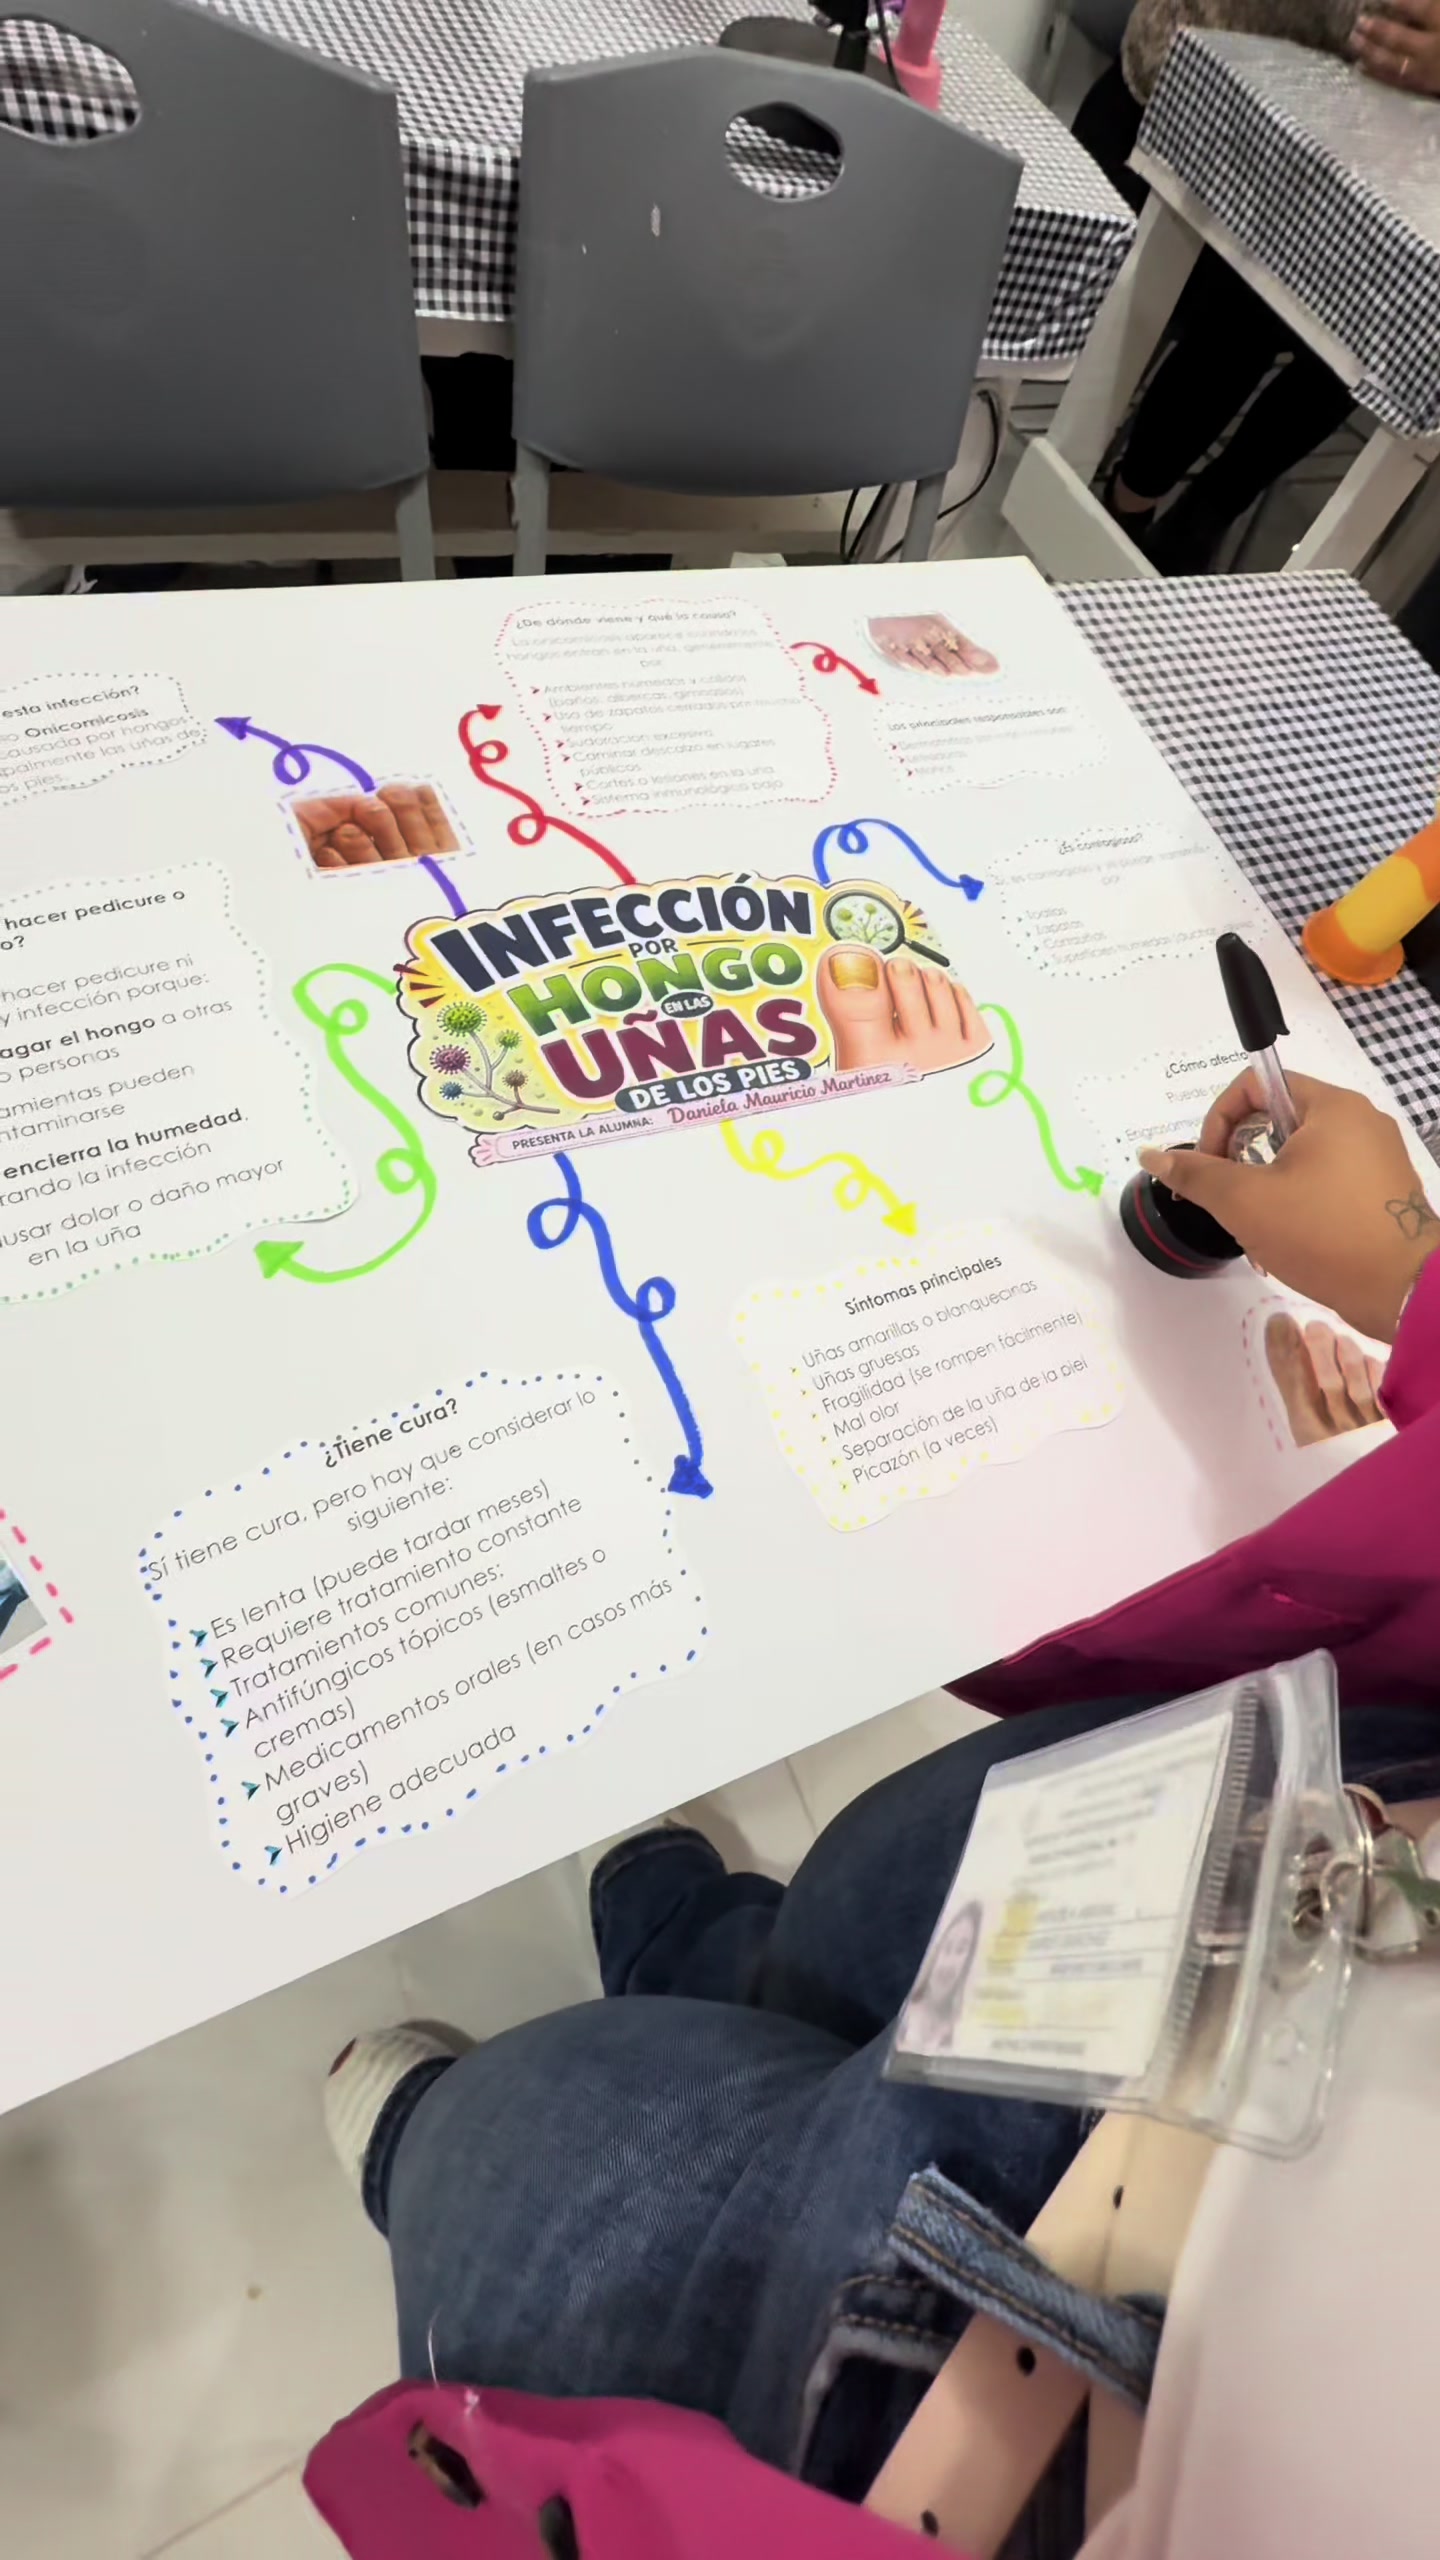 esta infección?
o Onicomicosis
causada por hongos
palmente las uñas de
os pies.
¿De dónde viene y qué la causa?
La onicomicosis aparece cuando los
hongos entran en la uña, generalmente
por:
Ambientes húmedos y cálidos
(baños, albercas, gimnasios)
Uso de zapatos cerrados por mucho
tiempo
Sudoración excesiva
Caminar descalzo en lugares
públicos
Cortes o lesiones en la uña
Sistema inmunológico bajo
Los principales responsables son:
Levaduras
Mohos
¿Es contagioso?
es contagioso y se puede
por:
Toallas
Zapatos
Cortaúñas
Superficies húmedas
hacer pedicure o
o?
hacer pedicure ni
y infección porque:
agar el hongo a otras
o personas
amientas pueden
ntaminarse
encierra la humedad,
rando la infección
usar dolor o daño mayor
en la uña
INFECCIÓN
POR
HONGO
EN LAS
UÑAS
DE LOS PIES
PRESENTA LA ALUMNA: Daniela Mauricio Martinez
¿Cómo afecta
Puede
Síntomas principales
Uñas amarillas o blanquecinas
Uñas gruesas
Fragilidad (se rompen fácilmente)
Mal olor
Separación de la uña de la piel
Picazón (a veces)
¿Tiene cura?
Sí tiene cura, pero hay que considerar lo
siguiente:
Es lenta (puede tardar meses)
Requiere tratamiento constante
Tratamientos comunes:
Antifúngicos tópicos (esmaltes o
cremas)
Medicamentos orales (en casos más
graves)
Higiene adecuada